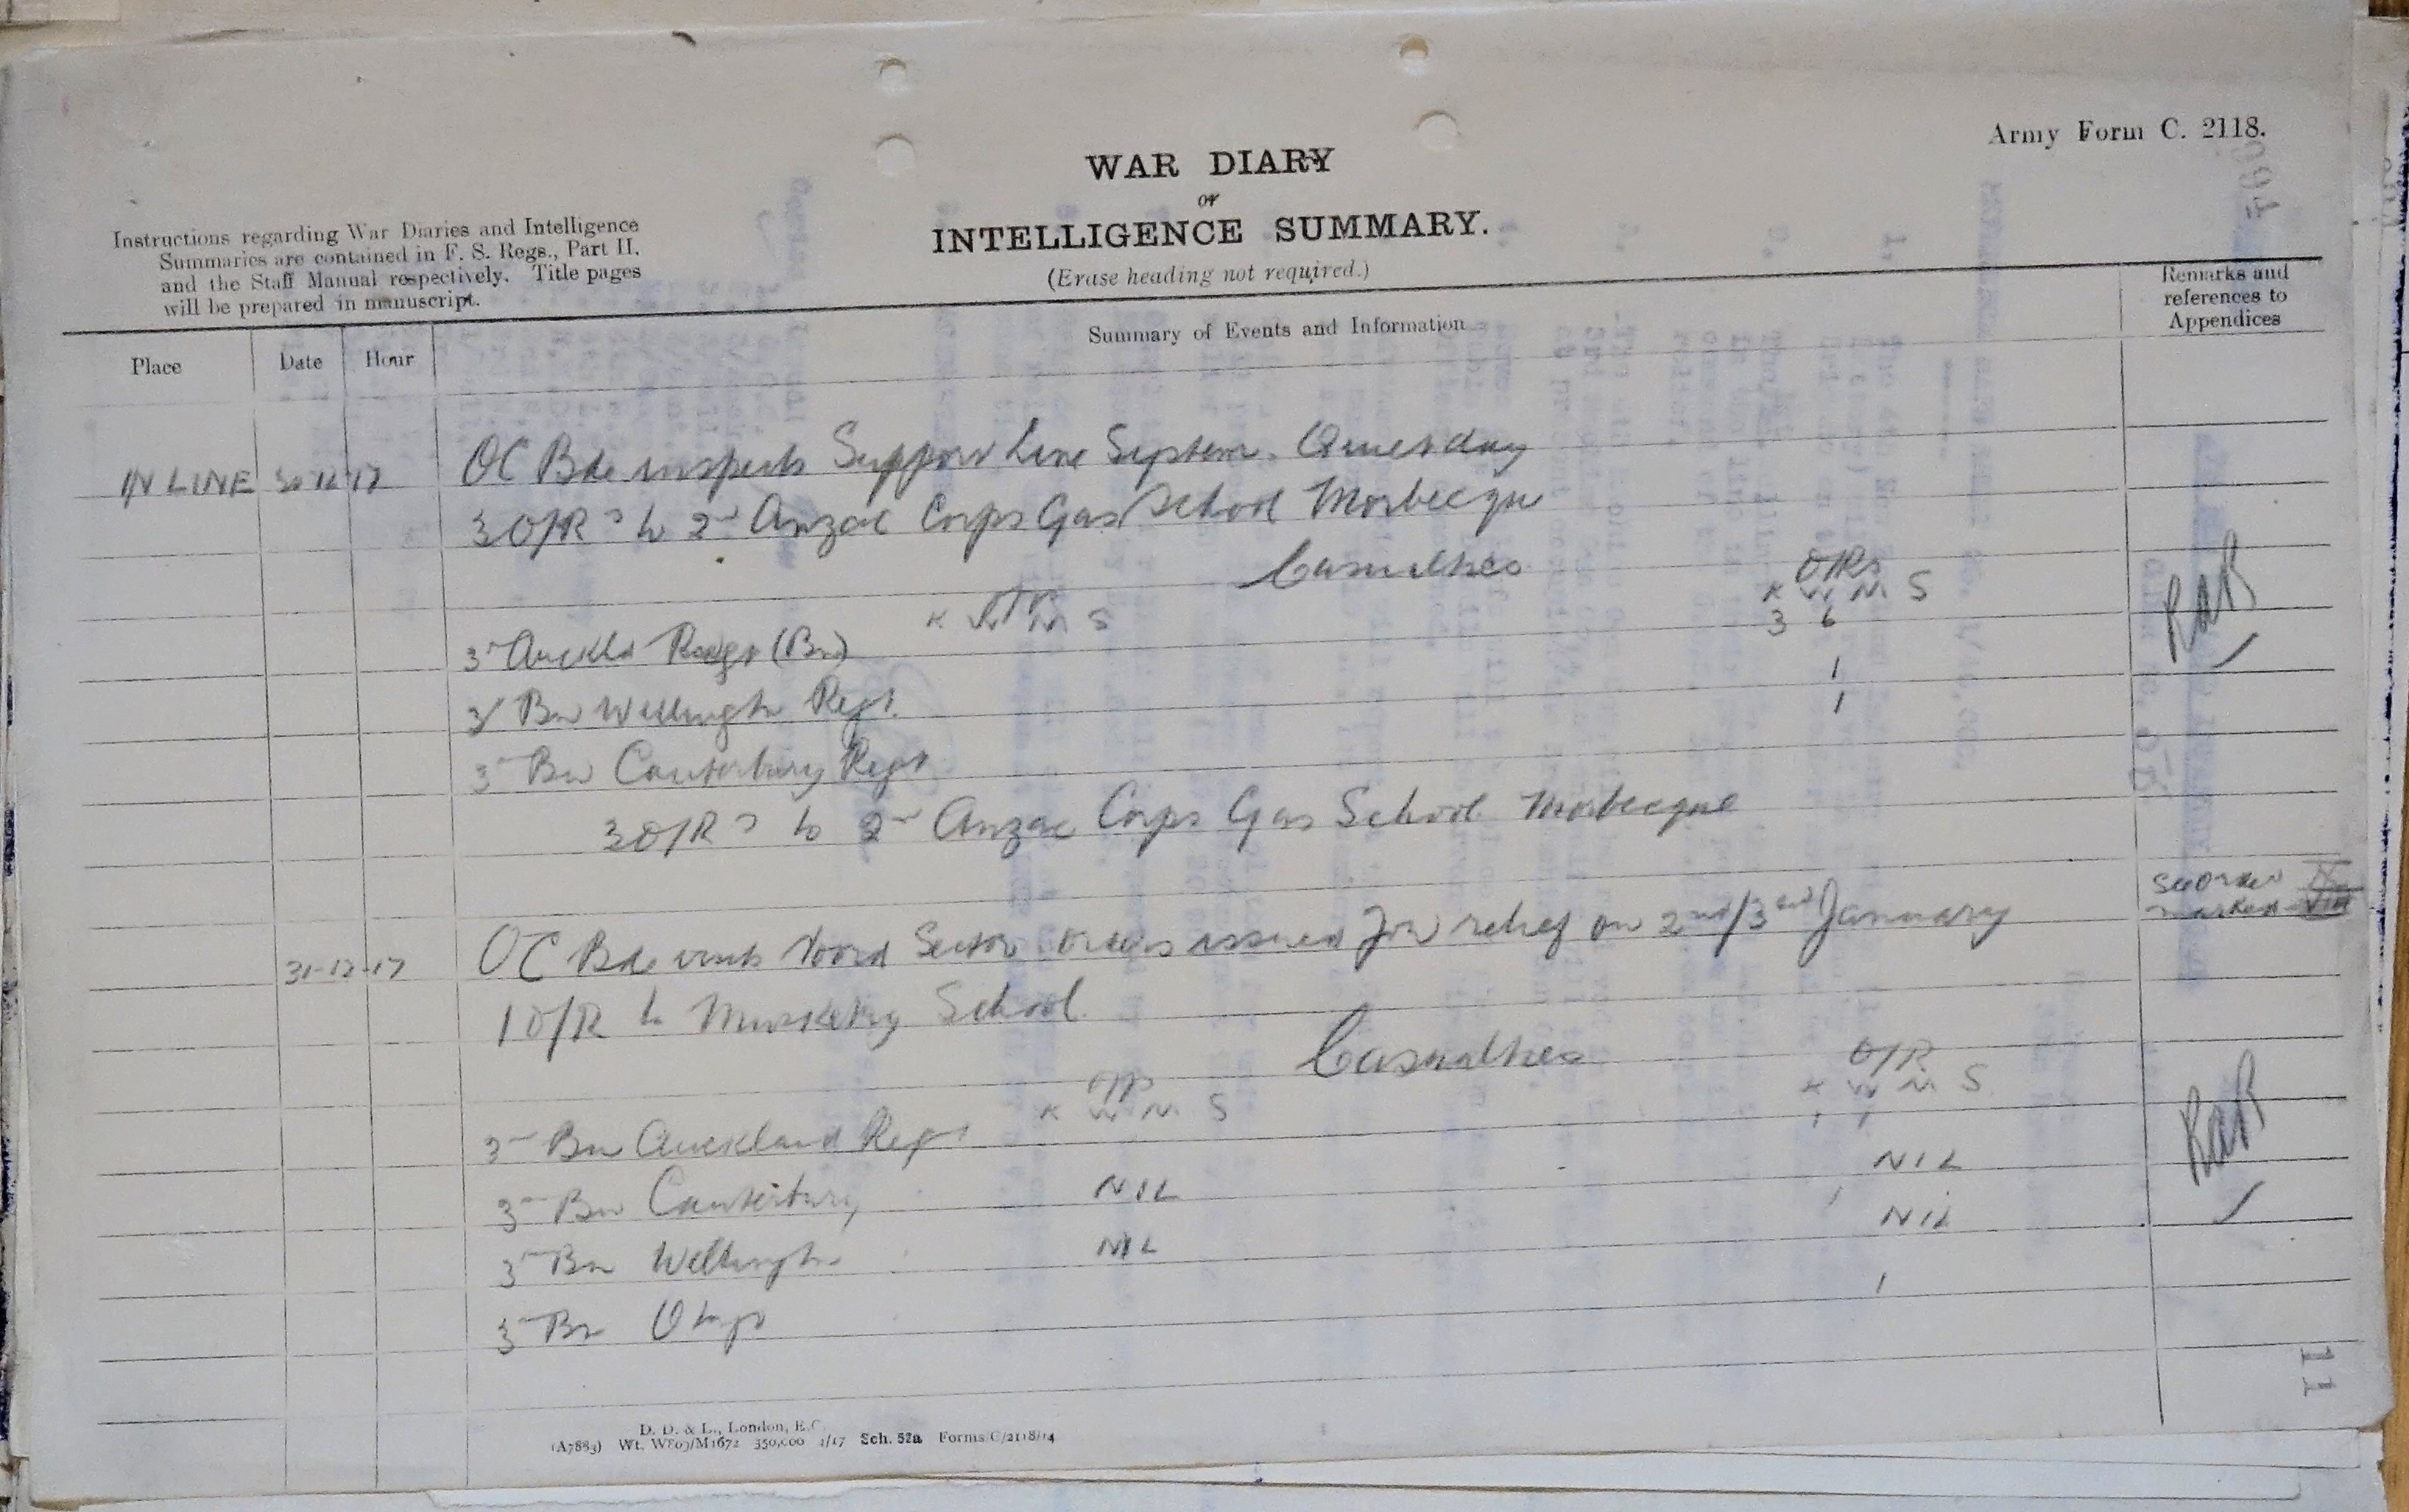 Army Form C. 2118.
WAR DIARY
or
INTELLIGENCE SUMMARY.
(Erase heading not required.)
Instructions regarding War Diaries and Intelligence
Summaries are contained in F. S. Regs., Part II.
and the Staff Manual respectively. Title pages
will be prepared in manuscript.
Place Date Hour Summary of Events and Information Remarks and references to Appendices
IN LINE 30 12 17 OC Bde inspects Support Line System. Quiet day
3 O/Rs to 2nd Anzac Corps Gas School Morbecque
Casualties
K W M S O/Rs K W M S
3 Auckld Regt (Bn) 3 6
3 Bn Wellington Regt. 1
3 Bn Canterbury Regt 1
RaB
3 O/Rs to 2nd Anzac Corps Gas School Morbecque
31-12-17 OC Bde visits Noord Sector orders issued for relief on 2nd/3rd January
See order marked VIII
1 O/R to Musketry School.
Casualties
K W M S O/R K W M S
3 Bn Auckland Regt 1 1
3 Bn Canterbury NIL NIL
3 Bn Wellington NIL 1 NiL
3 Bn Otago 1
RaB
11
D. D. & L., London, E.C.
(A7883) Wt. W809/M1672 350,000 4/17 Sch. 52a Forms/C/2118/14